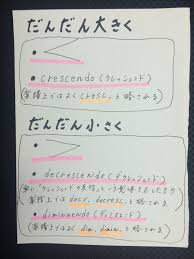 だんだん大きく
・crescendo (クレッシェンド)
(楽譜上ではよく cresc. と略される)
だんだん小さく
・decrescendo (デクレッシェンド)
楽譜上では decr. decresc. と略される)
・diminuendo (ディミヌエンド)
(楽譜上ではよく dim. dimin. と略される)